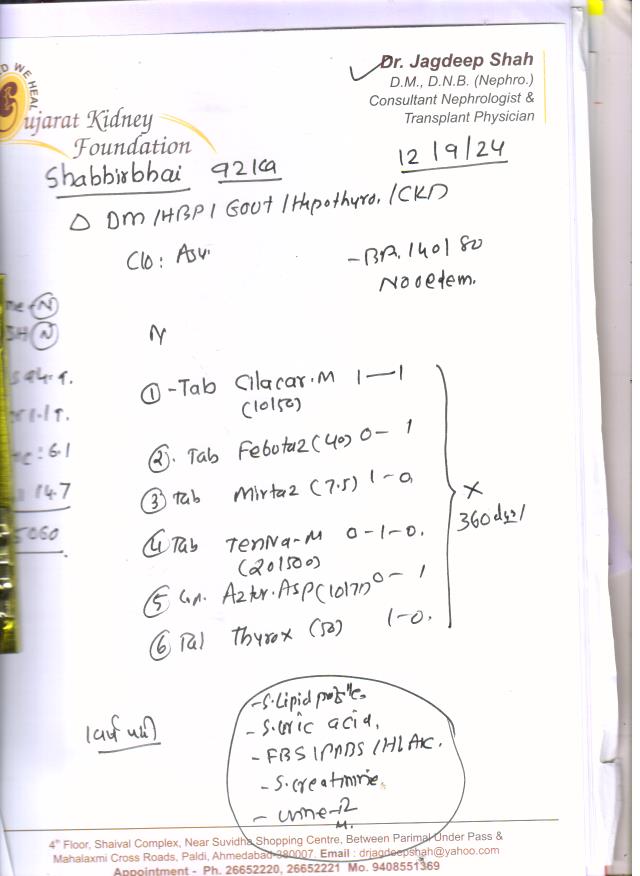 Dr. Jagdeep Shah
D.M., D.N.B. (Nephro.)
Consultant Nephrologist &
Transplant Physician
WE HEAL
Gujarat Kidney
Foundation
12/9/24
Shabbirbhai 92 kg
Δ DM /HBP / GOUT / Hypothyro. /CKD
C/o: Asy.
- BP. 140/80
No oedem.
N
N
94.9.
1.1
: 6.1
14.7
5060
① - Tab Cilacar.M 1—1
(10/50)
②. Tab Febutaz (40) 0 - 1
③ Tab Mirtaz (7.5) 1-0
④ Tab TenNa-M 0-1-0.
(20/500)
⑤ Aztor.Asp (10/75) 0 - 1
⑥ Tab Thyrox (50) 1-0.
x
360 days
- S. Lipid profile.
- S. Uric acid.
- FBS / PPBS / HbA1c.
- S. creatinine.
- Urine-R
M.
4th Floor, Shaival Complex, Near Suvidha Shopping Centre, Between Parimal Under Pass &
Mahalaxmi Cross Roads, Paldi, Ahmedabad-380007. Email : drjagdeepshah@yahoo.com
Appointment - Ph. 26652220, 26652221 Mo. 9408551369